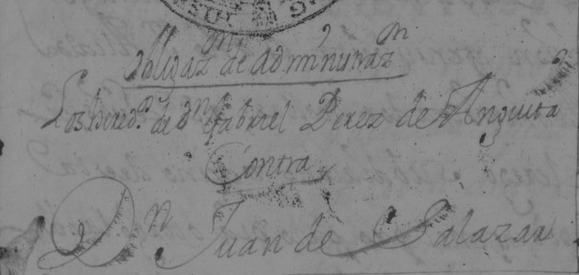 Obligaz.on de Adminiztraz.on
Los hered.s de Dn Gabriel Perez de Anguita
Contra
Dn Juan de Salazar